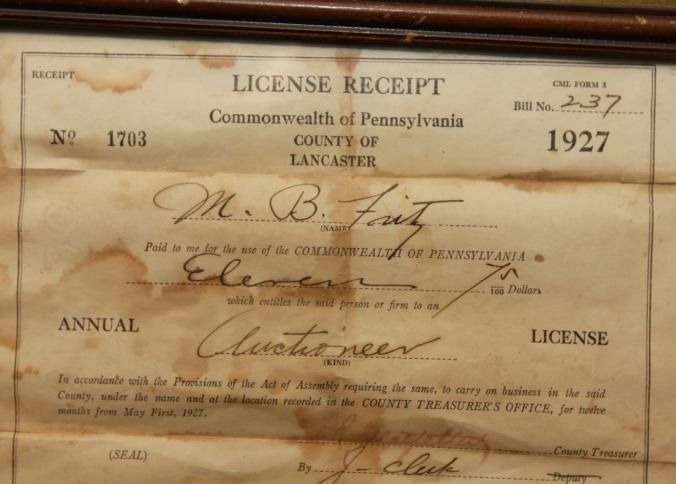 RECEIPT
LICENSE RECEIPT
CML FORM 3
Bill No. 237
Commonwealth of Pennsylvania
No 1703
COUNTY OF
1927
LANCASTER
M. B. Fritz
(NAME)
Paid to me for the use of the COMMONWEALTH OF PENNSYLVANIA
Eleven 75/100 Dollars
which entitles the said person or firm to an
ANNUAL Auctioneer LICENSE
(KIND)
In accordance with the Provisions of the Act of Assembly requiring the same, to carry on business in the said
County, under the name and at the location recorded in the COUNTY TREASURER'S OFFICE, for twelve
months from May First, 1927.
County Treasurer
(SEAL)
By Clerk Deputy